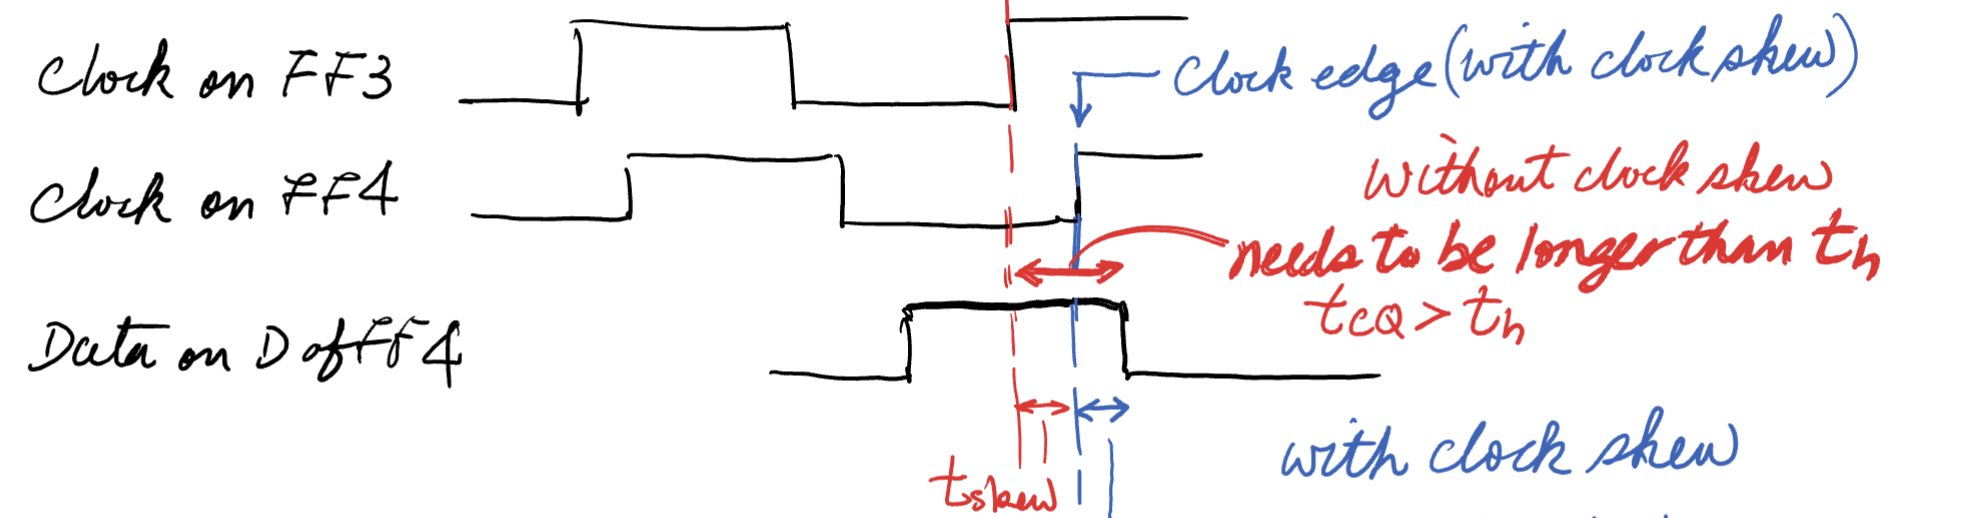 Clock on FF3
Clock edge (with clock skew)
Clock on FF4
without clock skew
needs to be longer than th
tCQ > th
Data on D of FF4
with clock skew
tskew